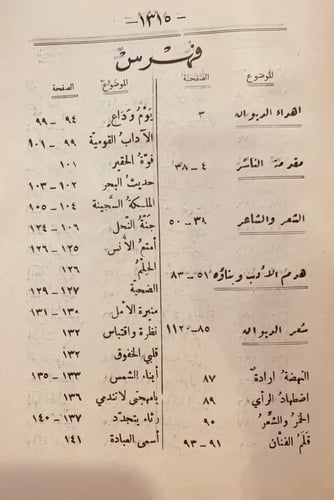 -١٣١٥-
فهرس
الموضوع الصفحة
اهداء الديوان ٣
مقدمة الناشر ٤-٣٨
الشعر والشاعر ٣٩-٥٠
هدم الأدب وبناؤه ٥١-٨٣
شعر الديوان ٨٥-١١٢٠
النهضة إرادة ٨٧
اضطهاد الرأي ٨٩
الخمر والشعر ٩٠
قلم الفنان ٩١-٩٣
الموضوع الصفحة
يوم وداع ٩٤-٩٩
الآداب القومية ٩٩-١٠١
قوة الحقير ١٠١
حديث البحر ١٠٢-١٠٣
الملكة السجينة ١٠٤-١٠٥
جنة النحل ١٠٦-١٢٤
أمتع الأنس ١٢٥-١٢٦
الحلم ١٢٦
الضحية ١٢٧-١٢٩
منبرة الأمل ١٣٠-١٣١
نظرة واقتباس ١٣٢
قلبي الخفوق ١٣٢
أبناء الشمس ١٣٣-١٣٥
يا مهجتي لا تندمي ١٣٦
رثاء يتجدد ١٣٧-١٤٠
أسمى العبادة ١٤١